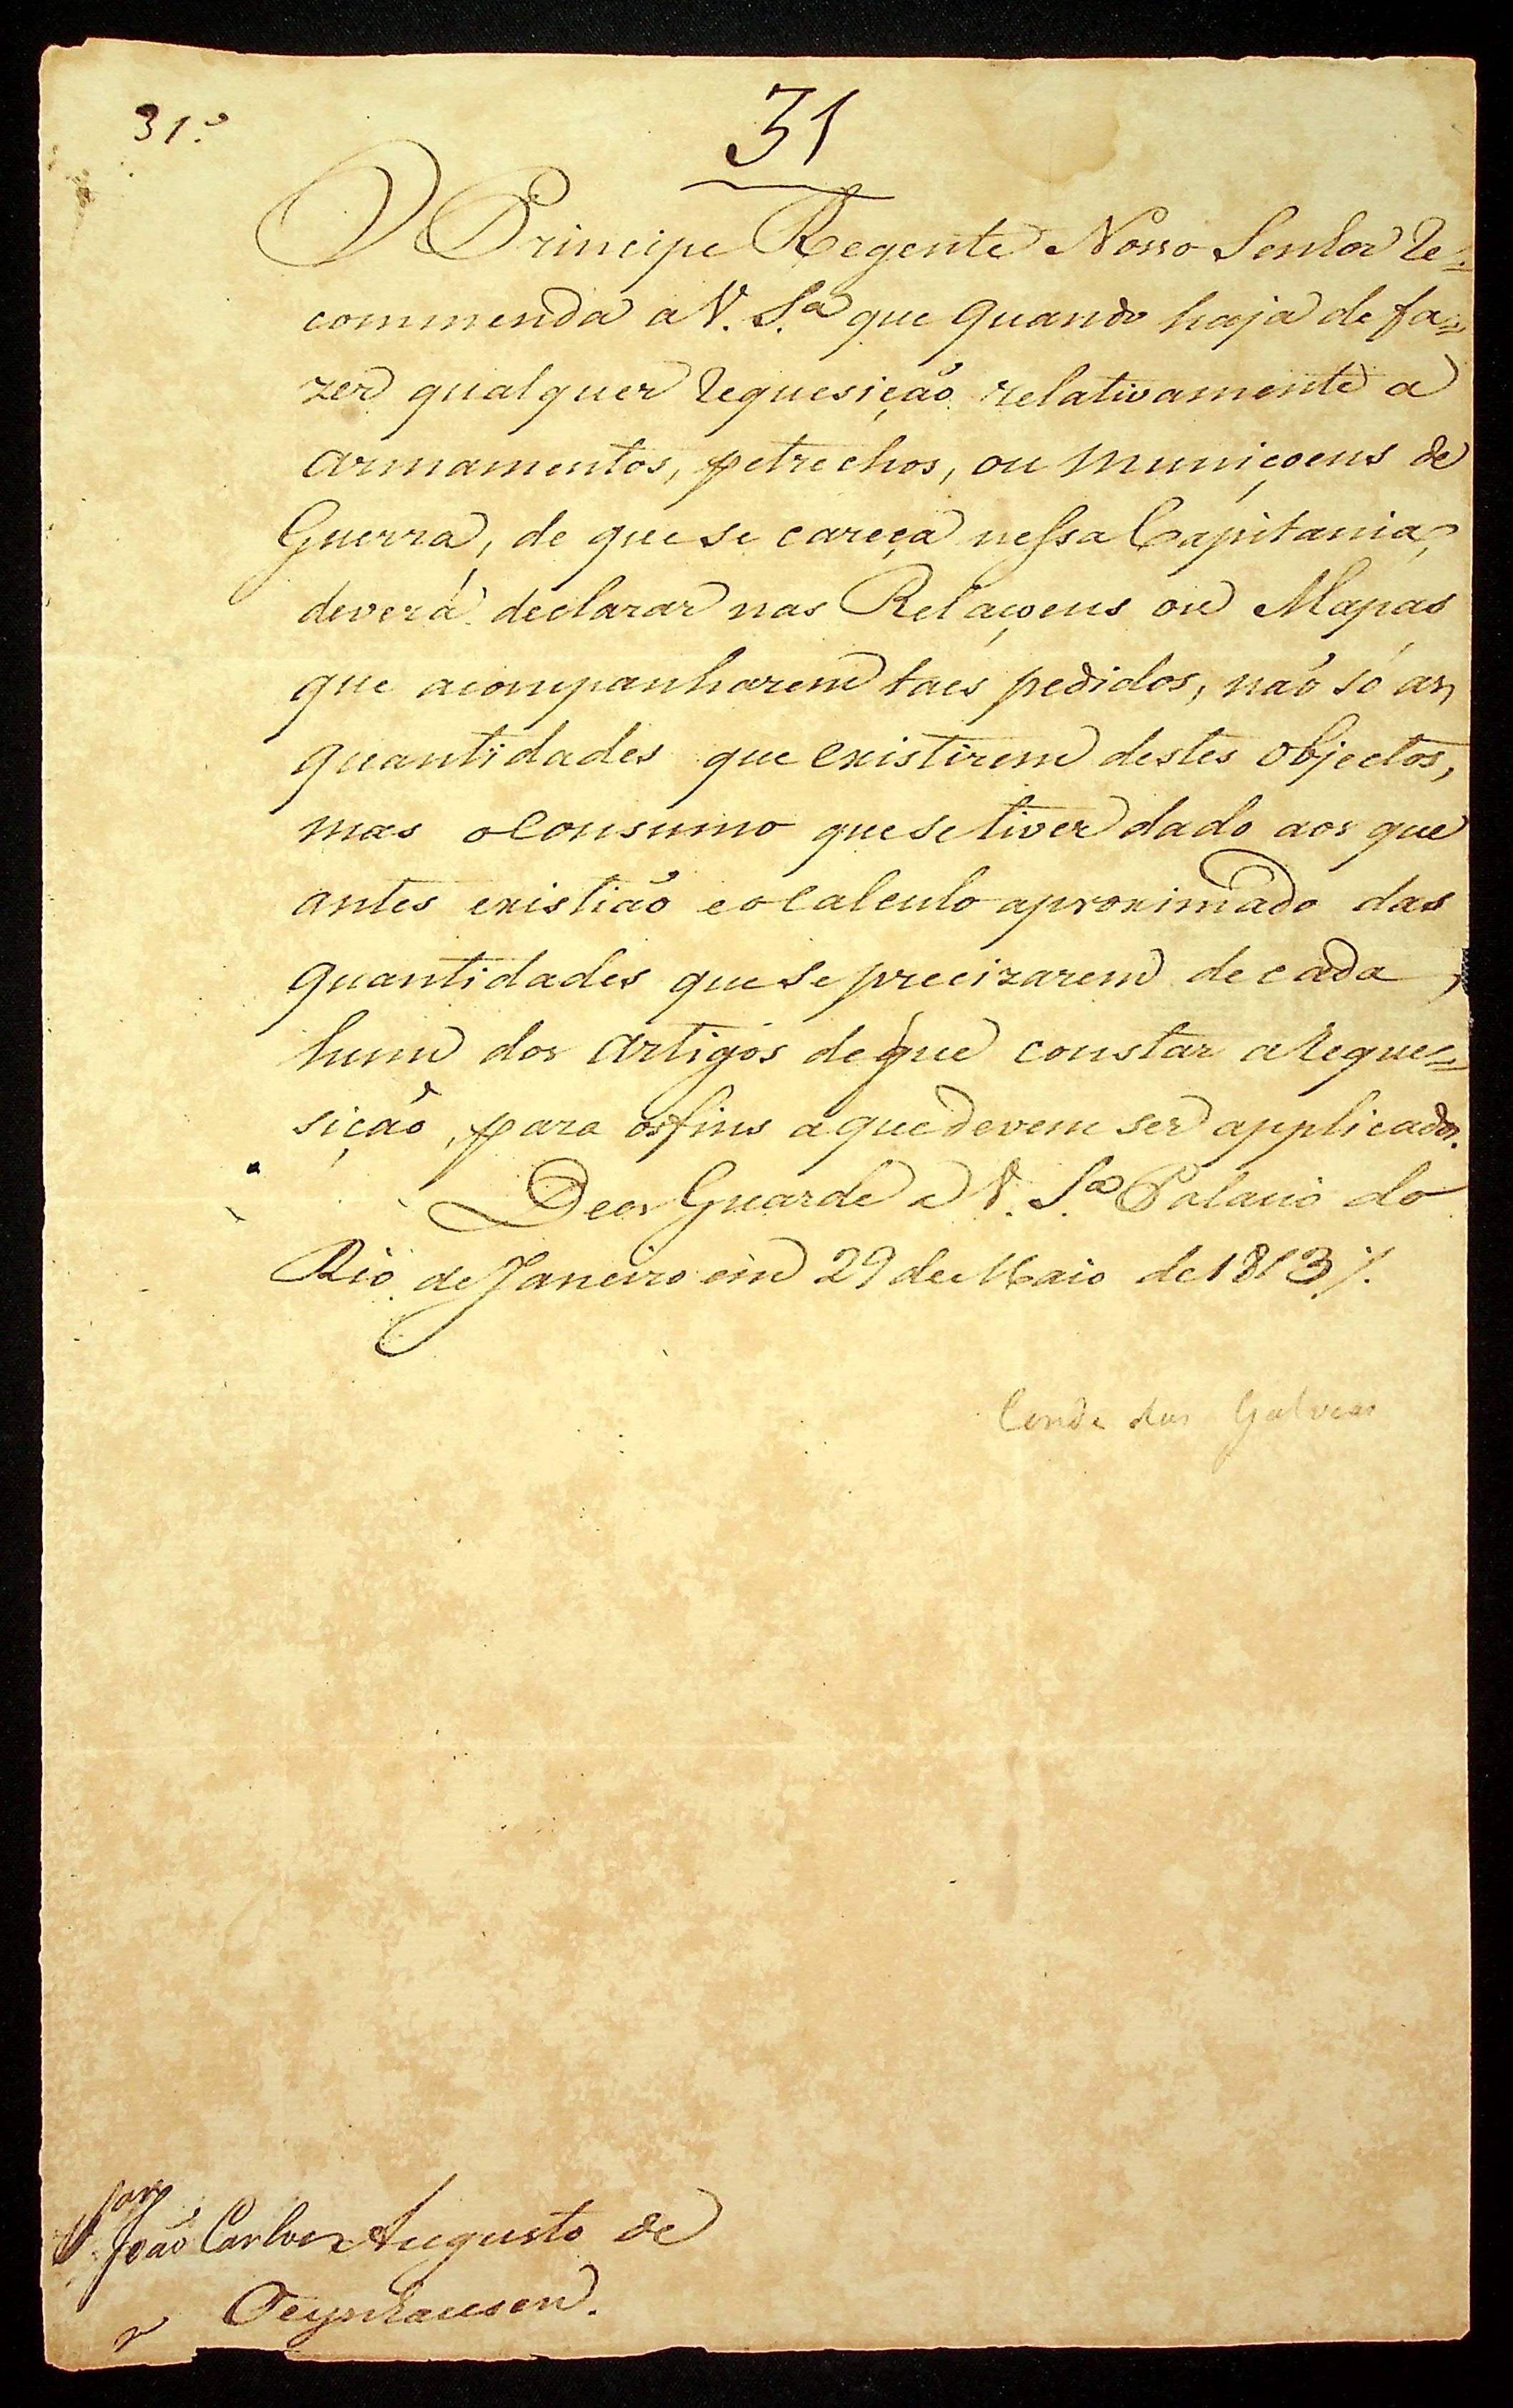 31.º
31
O Principe Regente Nosso Senhor re=
commenda a V. S.ª que quando haja de fa=
zer qualquer requesição relativamente a
armamentos, petrechos, ou muniçoens de
Guerra, de que se careça nessa Capitania,
deverá declarar nas Relaçoens ou Mapas
que acompanharem taes pedidos, não só as
quantidades que existirem destes objectos,
mas o consumo que se tiver dado aos que
antes existião e o calculo aproximado das
quantidades que se precizarem de cada
hum dos artigos de que constar a reque=
sição, para os fins a que devem ser applicados.
Deos Guarde a V. S.ª Palacio do
Rio de Janeiro em 29 de Maio de 1813 /.
Conde das Galveas
João Carlos Augusto de
Oeynhausen.